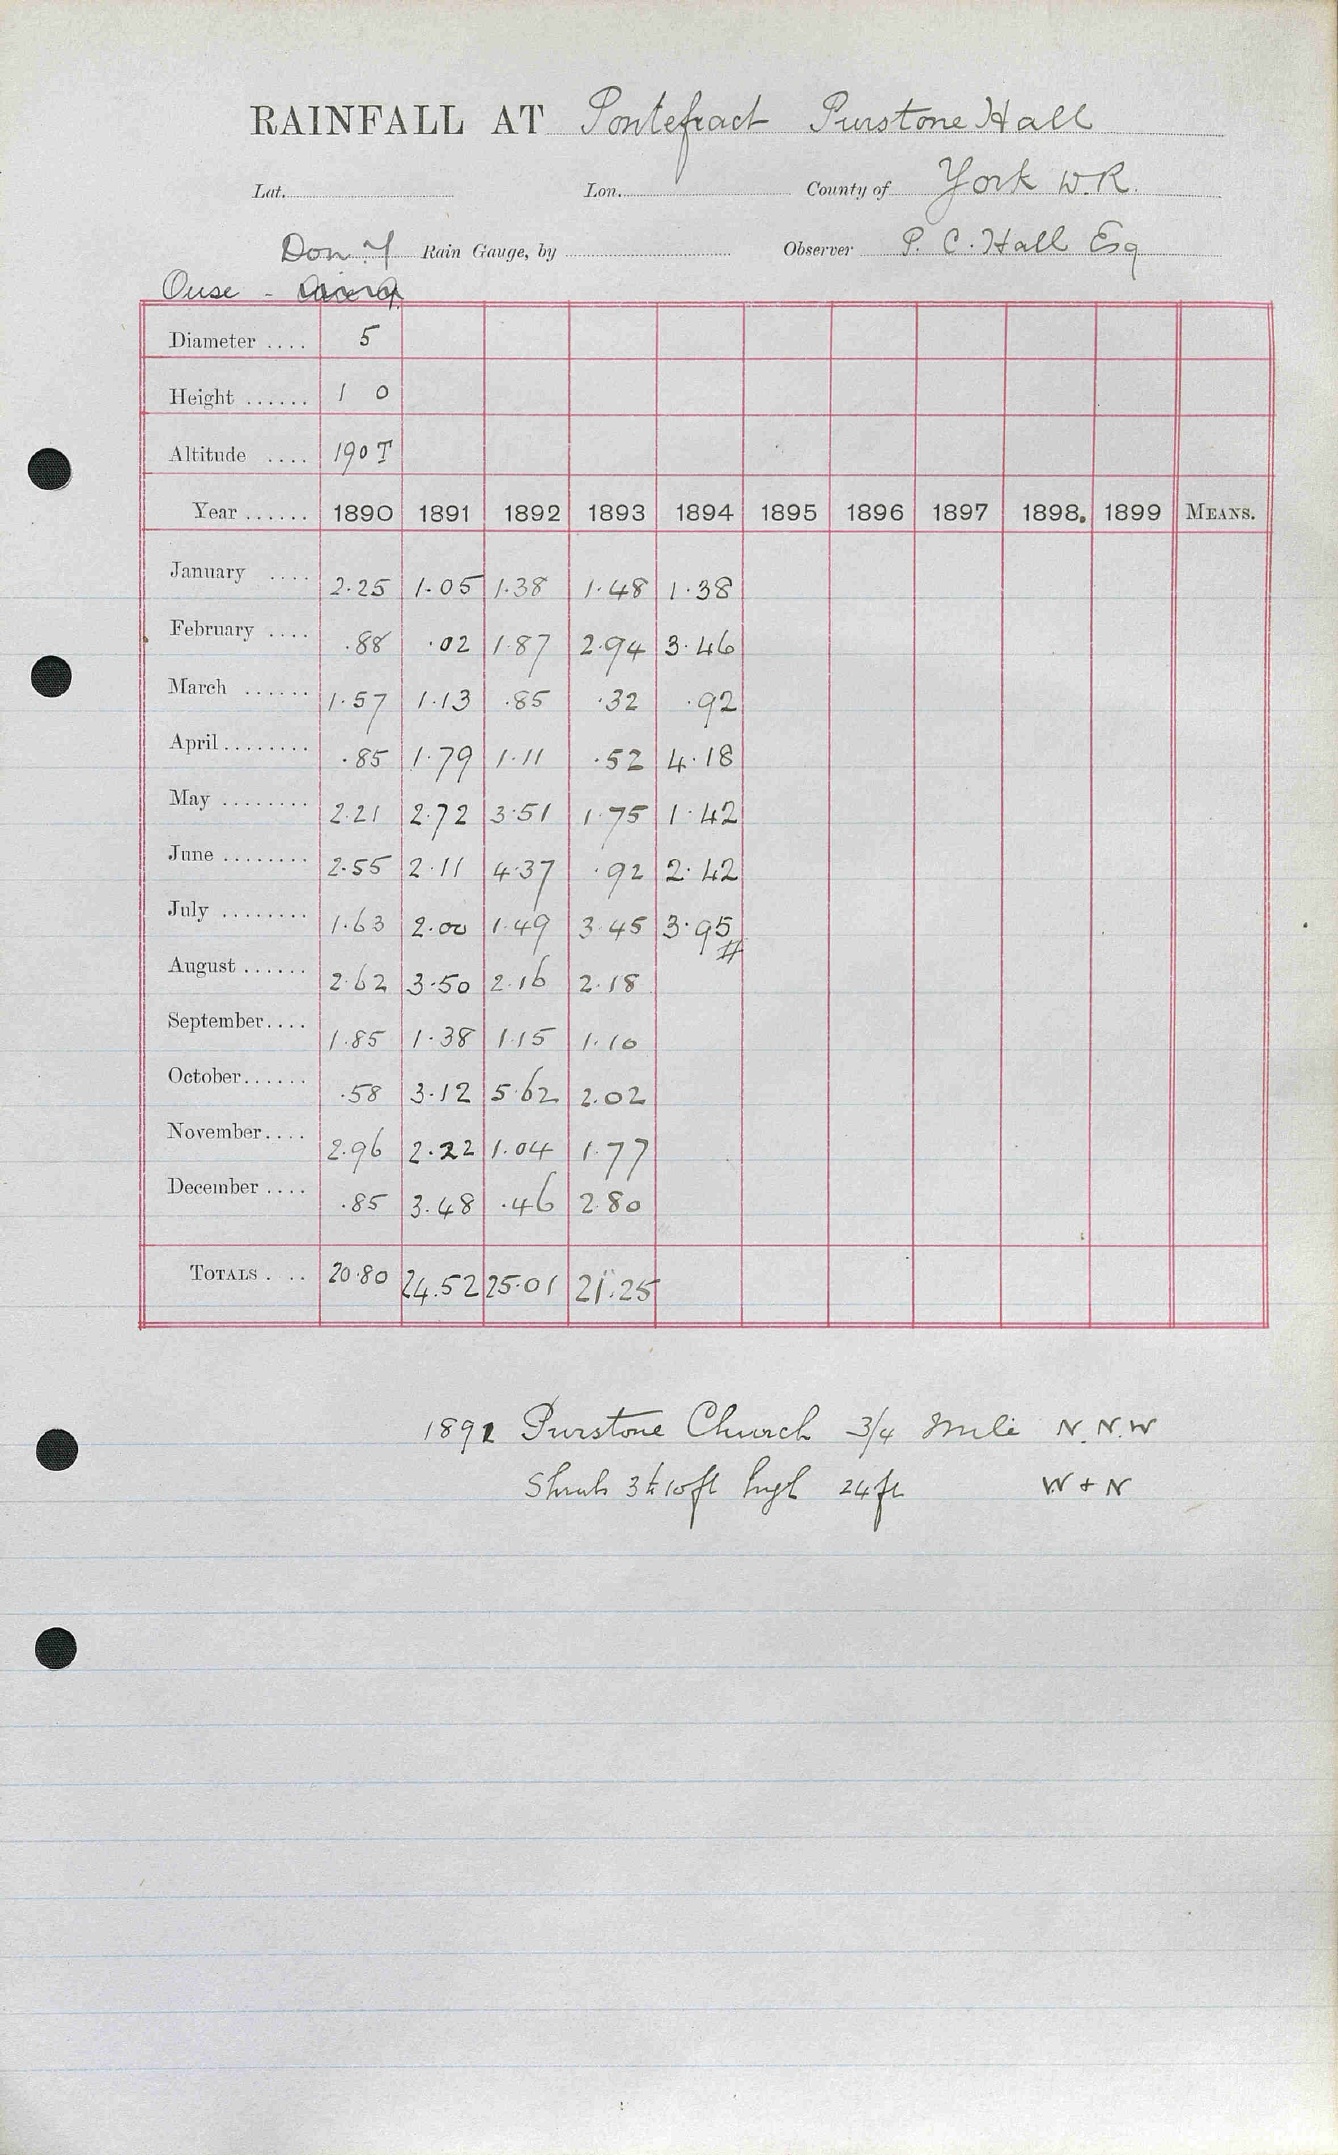 RAINFALL AT Pontefract Purstone Hall
Lat. Lon. County of York W.R.
Don Y Rain Gauge, by Observer P. C. Hall Esq
Ouse -
Diameter .... 5
Height ...... 1 0
Altitude .... 190 T
Year ...... 1890 1891 1892 1893 1894 1895 1896 1897 1898. 1899 MEANS.
January .... 2.25 1.05 1.38 1.48 1.38
February .... .88 .02 1.87 2.94 3.46
March ...... 1.57 1.13 .85 .32 .92
April ........ .85 1.79 1.11 .52 4.18
May ........ 2.21 2.72 3.51 1.75 1.42
June ........ 2.55 2.11 4.37 .92 2.42
July ........ 1.63 2.00 1.49 3.45 3.95
#
August ...... 2.62 3.50 2.16 2.18
September .... 1.85 1.38 1.15 1.10
October ...... .58 3.12 5.62 2.02
November .... 2.96 2.22 1.04 1.77
December .... .85 3.48 .46 2.80
TOTALS . .. 20.80 24.52 25.01 21.25
1892 Purstone Church 3/4 Mile N.N.W
Shrubs 3 to 10ft high 24ft W + N